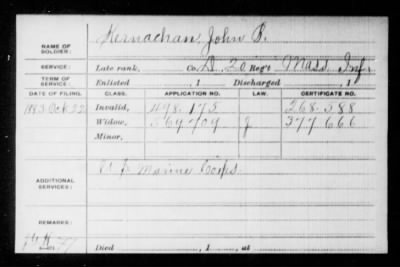 Kernachan, John P.
NAME OF SOLDIER:
SERVICE: Late rank, Co. D, 20 Reg't Mass Inf.
TERM OF SERVICE: Enlisted , 1 Discharged , 1
DATE OF FILING. CLASS. APPLICATION NO. LAW. CERTIFICATE NO.
1883 Oct 22 Invalid, 498.175 268.588
Widow, 569.709 J 377.666
Minor,
ADDITIONAL SERVICES: U S Marine Corps
REMARKS:
Died , 1 , at